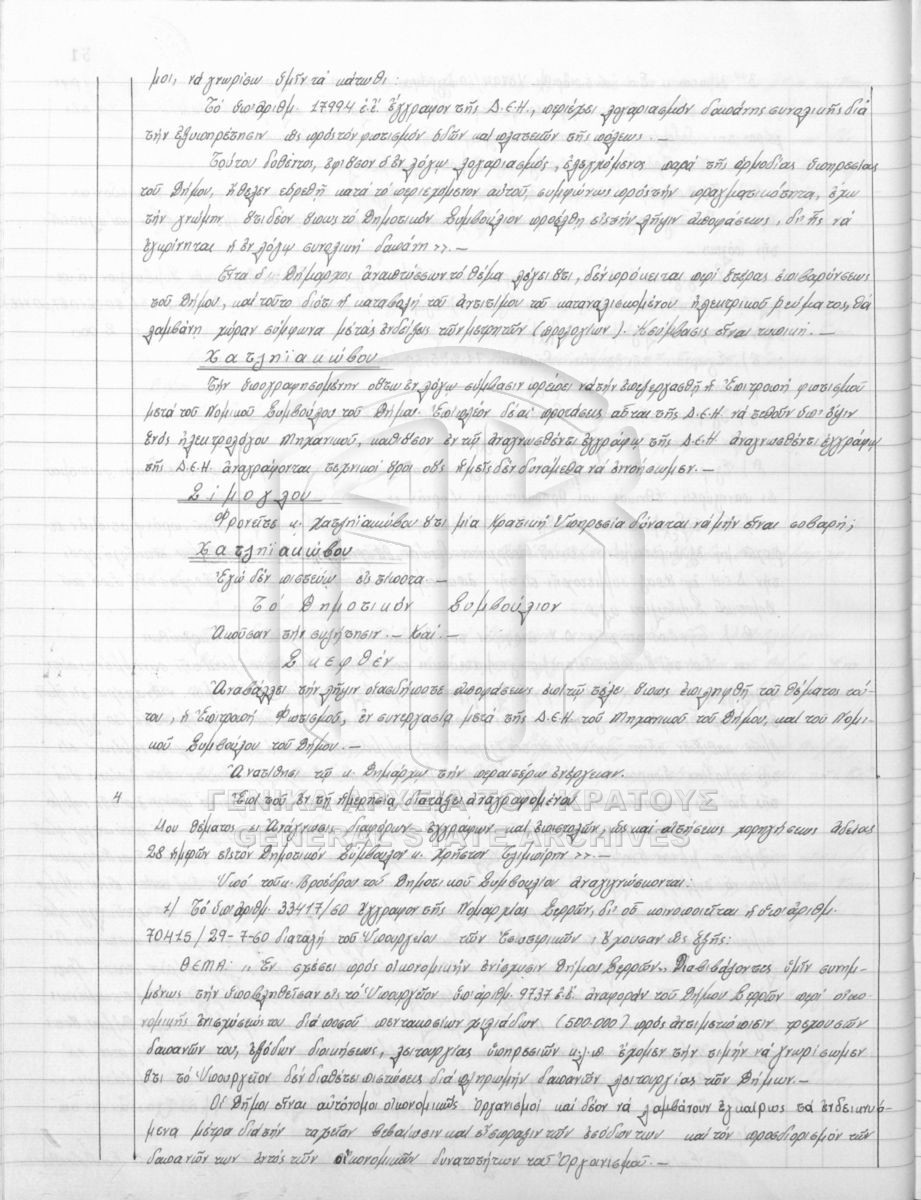 μοι, νά γνωρίσω ὑμῖν τά κάτωθι:
Τό ὑπ' ἀριθμ. 17994 ἐ.ἔ. ἔγγραφον τῆς Δ.Ε.Η., περιέχει λογαριασμόν δαπάνης συνολικῆς διά
τήν ἐξυπηρέτησιν ὡς πρός τόν φωτισμόν ὁδῶν καί πλατειῶν τῆς πόλεως. —
Τούτου δοθέντος, ἐφ' ὅσον ὁ ἐν λόγῳ λογαριασμός, ἐλεγχόμενος παρά τῆς ἁρμοδίας ὑπηρεσίας
τοῦ Δήμου, ἤθελεν εὑρεθῆ κατά τό περιεχόμενον αὐτοῦ, συμφώνως πρός τήν πραγματικότητα, ἔχω
τήν γνώμην ὅτι δέον ὅπως τό Δημοτικόν Συμβούλιον προέλθη εἰς τήν λῆψιν ἀποφάσεως, δι' ἧς νά
ἐγκρίνηται ἡ ἐν λόγῳ συνολική δαπάνη >>. —
Εἶτα ὁ κ. Δήμαρχος ἀναπτύσσων τό θέμα λέγει ὅτι, δέν πρόκειται περί ἑτέρας ἐπιβαρύνσεως
τοῦ Δήμου, καί τοῦτο διότι ἡ καταβολή τοῦ ἀντιτίμου τοῦ καταναλισκομένου ἠλεκτρικοῦ ρεύματος, θά
λαμβάνῃ χώραν σύμφωνα μέ τάς ἐνδείξεις τῶν μετρητῶν (ὡρολογίων). Ἡ σύμβασις εἶναι τυπική. —
Χατζηϊακώβου
Τήν ὑπογραφησομένην οὕτω ἐν λόγῳ σύμβασιν πρέπει νά τήν ἐπεξεργασθῆ ἡ Ἐπιτροπή φωτισμοῦ
μετά τοῦ Νομικοῦ Συμβούλου τοῦ Δήμου. Ἐπί πλέον δέ αἱ προτάσεις αὗται τῆς Δ.Ε.Η. νά τεθοῦν ὑπ' ὄψιν
ἑνός ἠλεκτρολόγου Μηχανικοῦ, καθ' ὅσον ἐν τῷ ἀναγνωσθέντι ἐγγράφῳ τῆς Δ.Ε.Η ἀναγνωσθέντι ἐγγράφῳ
τῆς Δ.Ε.Η. ἀναγράφονται τεχνικοί ὅροι οὕς ἡμεῖς δέν δυνάμεθα νά ἐννοήσωμεν. —
Σίμογλου
Φρονεῖτε κ. Χατζηϊακώβου ὅτι μία Κρατική Ὑπηρεσία δύναται νά μήν εἶναι σοβαρή;
Χατζηϊακώβου
Ἐγώ δέν πιστεύω εἰς τίποτα. —
Τό Δημοτικόν Συμβούλιον
Ἀκοῦσαν τήν συζήτησιν. — Καί. —
Σκεφθέν
Ἀναβάλλει τήν λῆψιν οἱασδήποτε ἀποφάσεως ἐπί τῷ τέλει ὅπως ἐπιληφθῆ τοῦ θέματος τού-
του, ἡ Ἐπιτροπή Φωτισμοῦ, ἐν συνεργασίᾳ μετά τῆς Δ.Ε.Η τοῦ Μηχανικοῦ τοῦ Δήμου, καί τοῦ Νομι-
κοῦ Συμβούλου τοῦ Δήμου. —
Ἀνατίθησι τῷ κ. Δημάρχῳ τήν περαιτέρω ἐνέργειαν.
4 Ἐπί τοῦ ἐν τῇ ἡμερησίᾳ διατάξει ἀναγραφομένου
ΓΕΝΙΚΑ ΑΡΧΕΙΑ ΤΟΥ ΚΡΑΤΟΥΣ
4ου θέματος << Ἀνάγνωσις διαφόρων ἐγγράφων καί ἐπιστολῶν, ὡς καί αἰτήσεως χορηγήσεως ἀδείας
GENERAL STATE ARCHIVES
28 ἡμερῶν εἰς τόν Δημοτικόν Σύμβουλον κ. Χρῆστον >>. —
Ὑπό τοῦ κ. Προέδρου τοῦ Δημοτικοῦ Συμβουλίου ἀναγιγνώσκονται:
1) Τό ὑπ' ἀριθμ. 33417/60 ἔγγραφον τῆς Νομαρχίας Σερρῶν, δι' οὗ κοινοποιεῖται ἡ ὑπ' ἀριθμ.
70415/29-7-60 διαταγή τοῦ Ὑπουργείου τῶν Ἐσωτερικῶν, ἔχουσαν ὡς ἑξῆς:
ΘΕΜΑ: ,, Ἐν σχέσει πρός οἰκονομικήν ἐνίσχυσιν Δήμου Σερρῶν,, Διαβιβάζοντες ὑμῖν συνημ-
μένως τήν ὑποβληθεῖσαν εἰς τό Ὑπουργεῖον ὑπ' ἀριθμ. 9737 ἐ.ἔ. ἀναφοράν τοῦ Δήμου Σερρῶν περί οἰκο-
νομικῆς ἐνισχύσεώς του διά ποσοῦ πεντακοσίων χιλιάδων (500.000) πρός ἀντιμετώπισιν τρεχουσῶν
δαπανῶν του, ἐξόδων διοικήσεως, λειτουργίας ὑπηρεσιῶν κ.λ.π ἔχομεν τήν τιμήν νά γνωρίσωμεν
ὅτι τό Ὑπουργεῖον δέν διαθέτει πιστώσεις διά πληρωμήν δαπανῶν λειτουργίας τῶν Δήμων. —
Οἱ Δῆμοι εἶναι αὐτόνομοι οἰκονομικῶς Ὀργανισμοί καί δέον νά λαμβάνουν ἐγκαίρως τά ἐνδεικνυό-
μενα μέτρα διά τήν ταχεῖαν βεβαίωσιν καί εἴσπραξιν τῶν ἐσόδων των καί τόν προσδιορισμόν τῶν
δαπανῶν των ἐντός τῶν οἰκονομικῶν δυνατοτήτων τοῦ Ὀργανισμοῦ. —